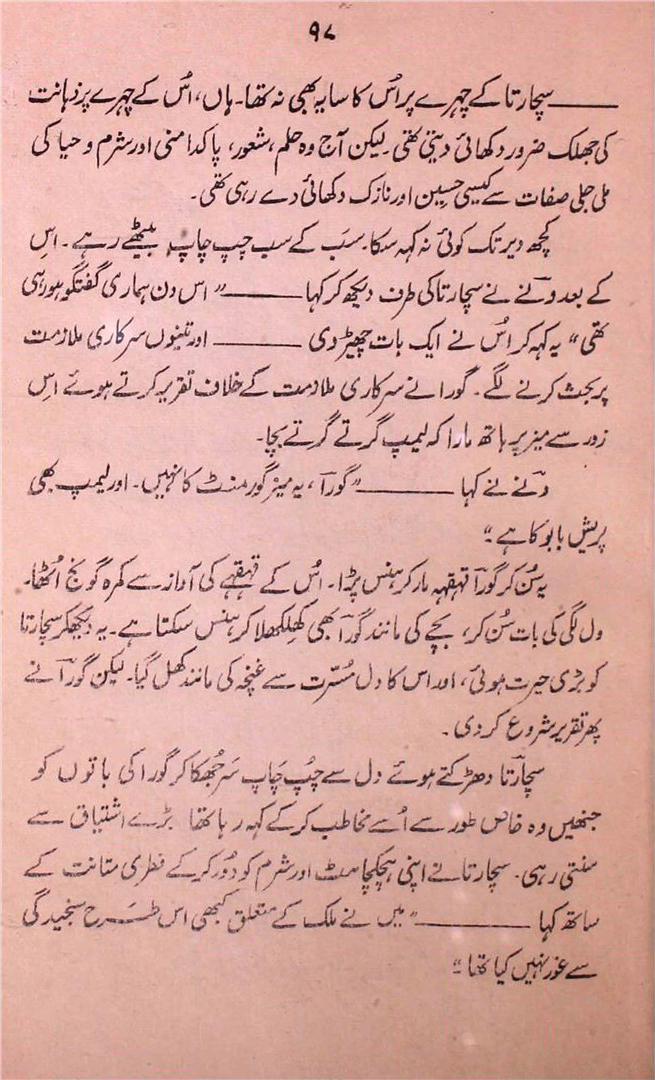 ۹۷
——— سچارتا کے چہرے پر اُس کا سایہ بھی نہ تھا۔ ہاں، اُس کے چہرے پر ذہانت
کی جھلک ضرور دکھائی دیتی تھی۔ لیکن آج وہ حلم، شعور، پاکدامنی اور شرم و حیا کی
ملی جلی صفات سے کیسی حسین اور نازک دکھائی دے رہی تھی۔
کچھ دیر تک کوئی نہ کہہ سکا۔ سب کے سب چپ چاپ بیٹھے رہے۔ اس
کے بعد ونے نے سچارتا کی طرف دیکھ کر کہا ——— ”اس دن ہماری گفتگو ہو رہی
تھی“ یہ کہہ کر اُس نے ایک بات چھیڑ دی ——— اور تینوں سرکاری ملازمت
پر بحث کرنے لگے۔ گورا نے سرکاری ملازمت کے خلاف تقریر کرتے ہوئے اِس
زور سے میز پر ہاتھ مارا کہ لیمپ گرتے گرتے بچا۔
ونے نے کہا ——— ”گورآ، یہ میز گورمنٹ کا نہیں۔ اور لیمپ بھی
پریش بابو کا ہے۔“
یہ سُن کر گورآ قہقہہ مار کر ہنس پڑا۔ اُس کے قہقہے کی آواز سے کمرہ گونج اُٹھا۔
دل لگی کی بات سُن کر، بچے کی مانند گورآ بھی کھِلکھلا کر ہنس سکتا ہے۔ یہ دیکھکر سچارتا
کو بڑی حیرت ہوئی، اور اس کا دل مسرّت سے غنچہ کی مانند کھل گیا۔ لیکن گورآ نے
پھر تقریر شروع کر دی۔
سچارتا دھڑکتے ہوئے دل سے چُپ چَاپ سَر جُھکا کر گورا کی باتوں کو
جنھیں وہ خاص طور سے اُسے مخاطب کر کے کہہ رہا تھا بڑے اشتیاق سے
سنتی رہی۔ سچارتا نے اپنی ہچکچاہٹ اور شرم کو دُور کر کے فطری متانت کے
ساتھ کہا ——— ”میں نے ملک کے متعلق کبھی اس طرح سنجیدگی
سے غور نہیں کیا تھا۔“